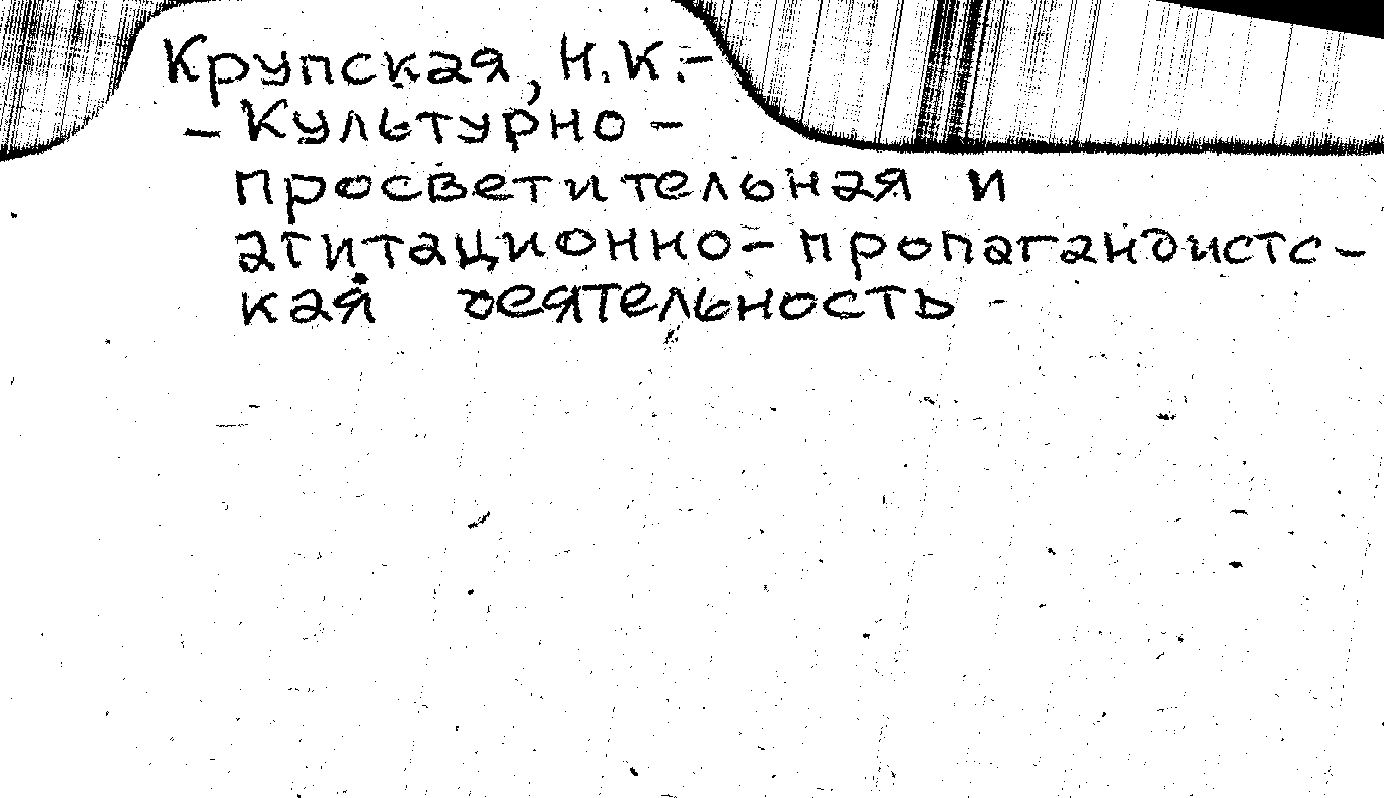 Крупская, Н.К.–
– Культурно –
просветительная и
агитационно-пропагандистс-
кая деятельность